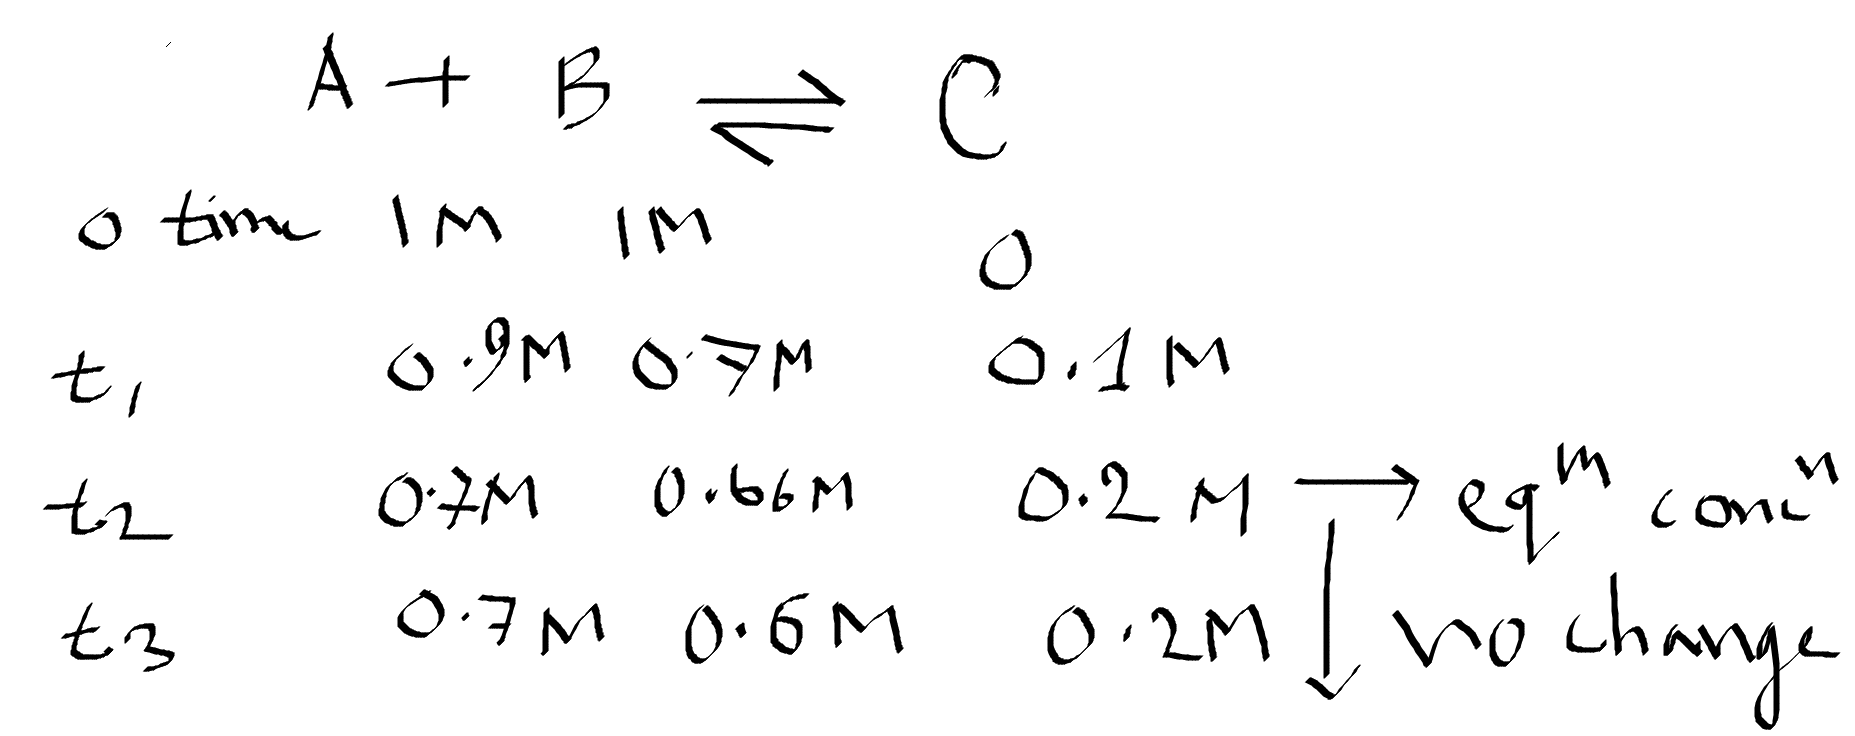 A + B ⇌ C
0 time 1M 1M 0
t1 0.9M 0.7M 0.1M
t2 0.7M 0.66M 0.2M → eqm concn
t3 0.7M 0.6M 0.2M ↓ no change